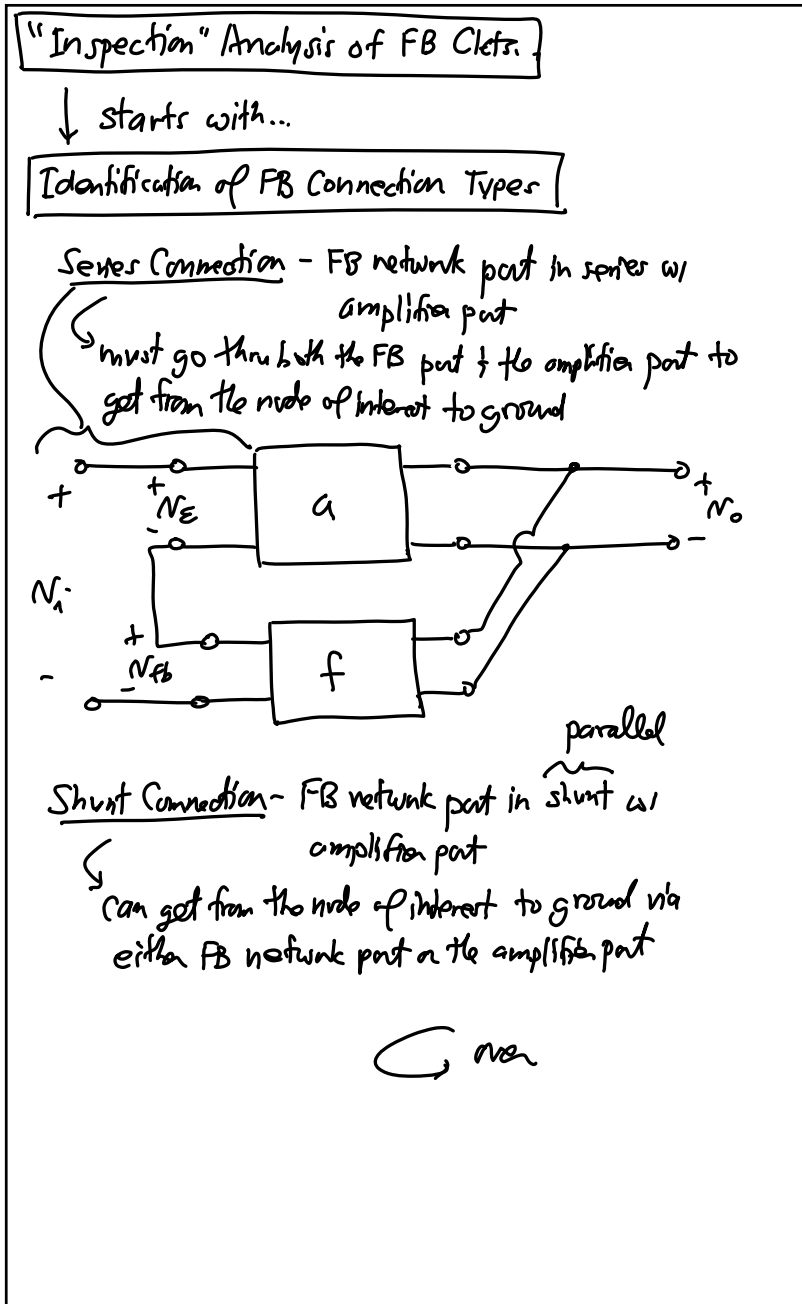 "Inspection" Analysis of FB Ckts.
↓ starts with...
Identification of FB Connection Types
Series Connection - FB network port in series w/
amplifier port
must go thru both the FB port & the amplifier port to
get from the node of interest to ground
+ + a +
- Nε No
Ni -
+ f
- Nfb
-
parallel
Shunt Connection - FB network port in shunt w/
amplifier port
can get from the node of interest to ground via
either FB network port or the amplifier port
over